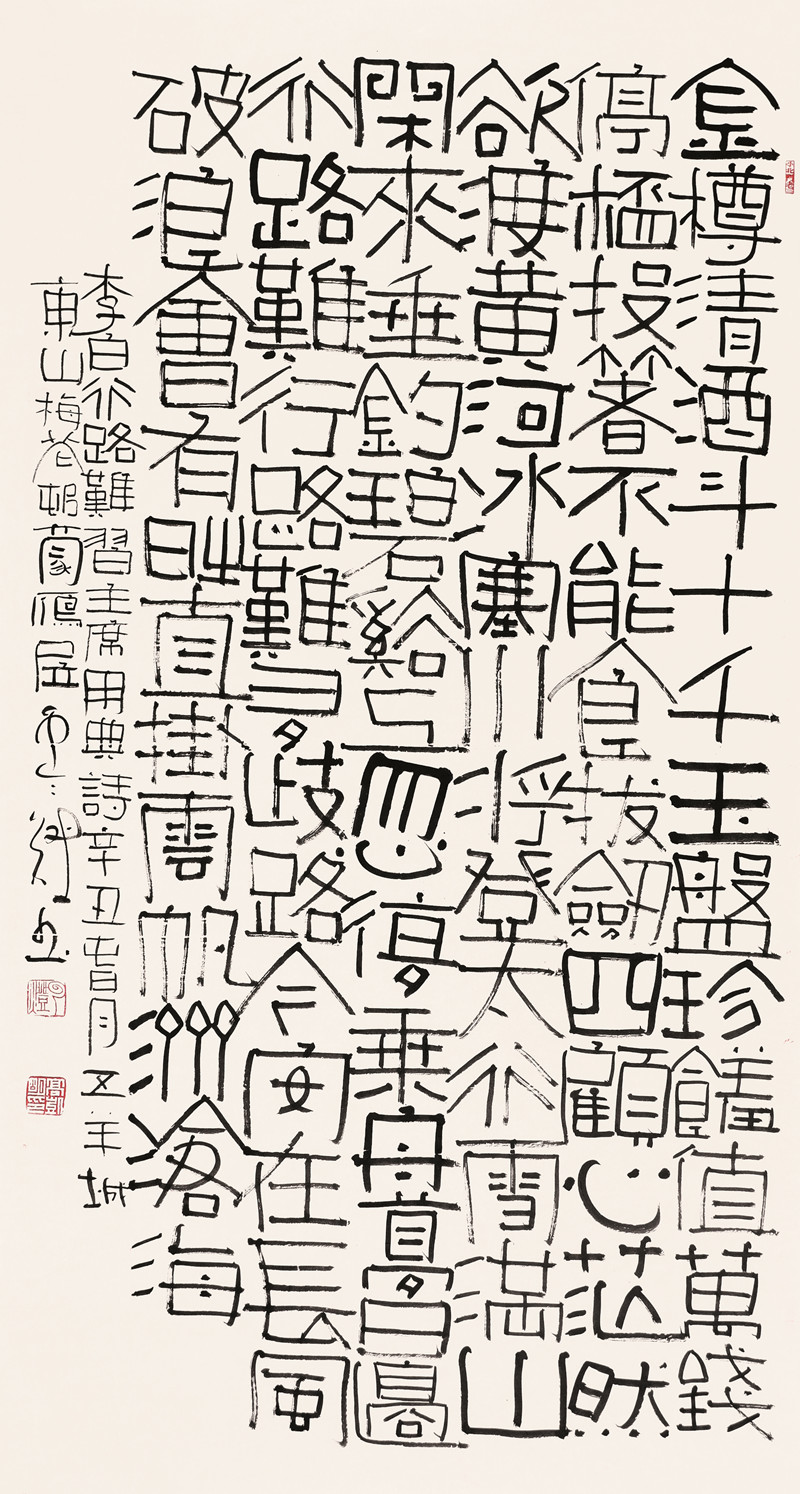 金樽清酒斗十千玉盤珍饈值萬錢
停杯投箸不能食拔劍四顧心茫然
欲渡黃河冰塞川將登太行雪滿山
閑來垂釣碧谿上忽復乘舟夢日邊
行路難行路難多歧路今安在長風
破浪會有時直掛雲帆濟滄海
李白行路難習主席用典詩辛丑春月五羊城
東山梅花邨